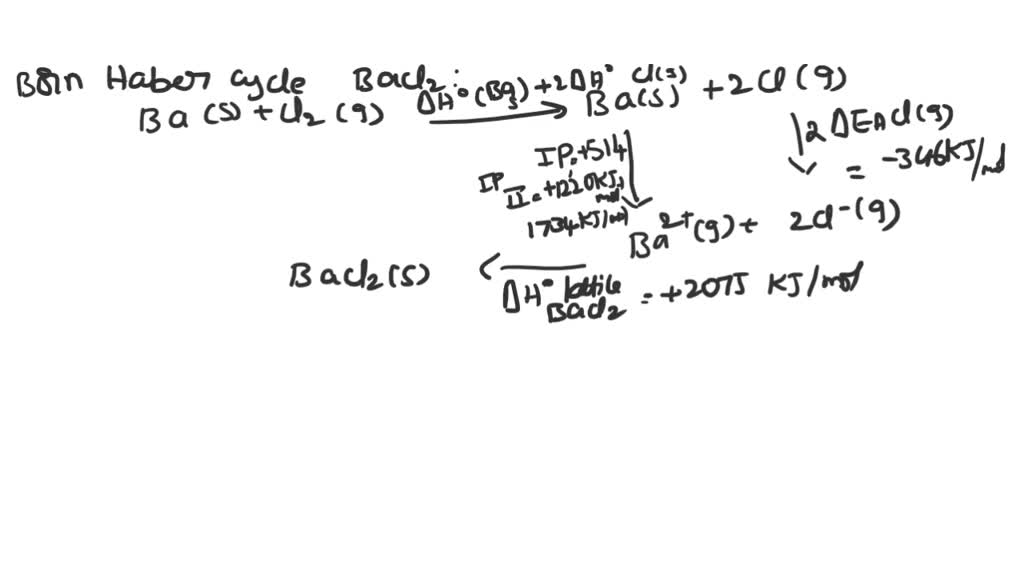 Born Haber cycle BaCl2:
Ba (s) + Cl2 (g) ΔH° (Bag) + 2ΔH° Cl(s) Ba(s) + 2Cl (g)
2 ΔEA Cl(g)
= -346KJ/mol
IP: +514
IP II = +1220KJ, mol
1734KJ/mol
Ba2+ (g) + 2Cl-(g)
BaCl2(s)
ΔH° lattice BaCl2 = +2075 KJ/mol